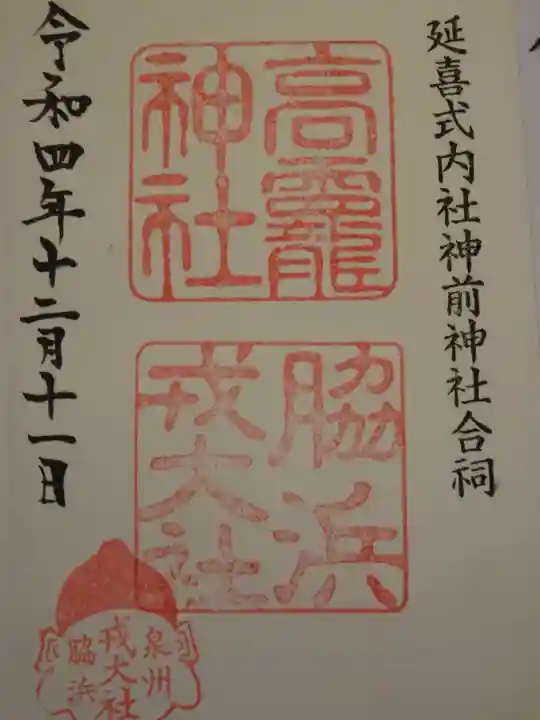 延喜式内社神前神社合祠
高龗
神社
脇浜
戎大社
泉州
戎大社
脇浜
令和四年十二月十一日